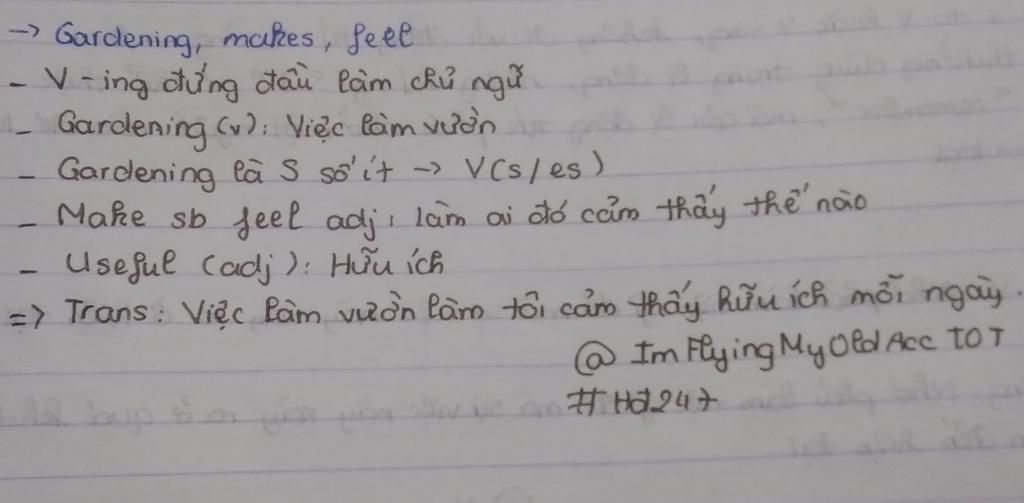 → Gardening, makes, feel
- V-ing đứng đầu làm chủ ngữ
- Gardening (v): Việc làm vườn
- Gardening là S số ít → V(s/es)
- Make sb feel adj: làm ai đó cảm thấy thế nào
- Useful (adj): Hữu ích
=> Trans: Việc làm vườn làm tôi cảm thấy hữu ích mỗi ngày.
@ ImFlyingMyOldAcc TOT
#Hd247